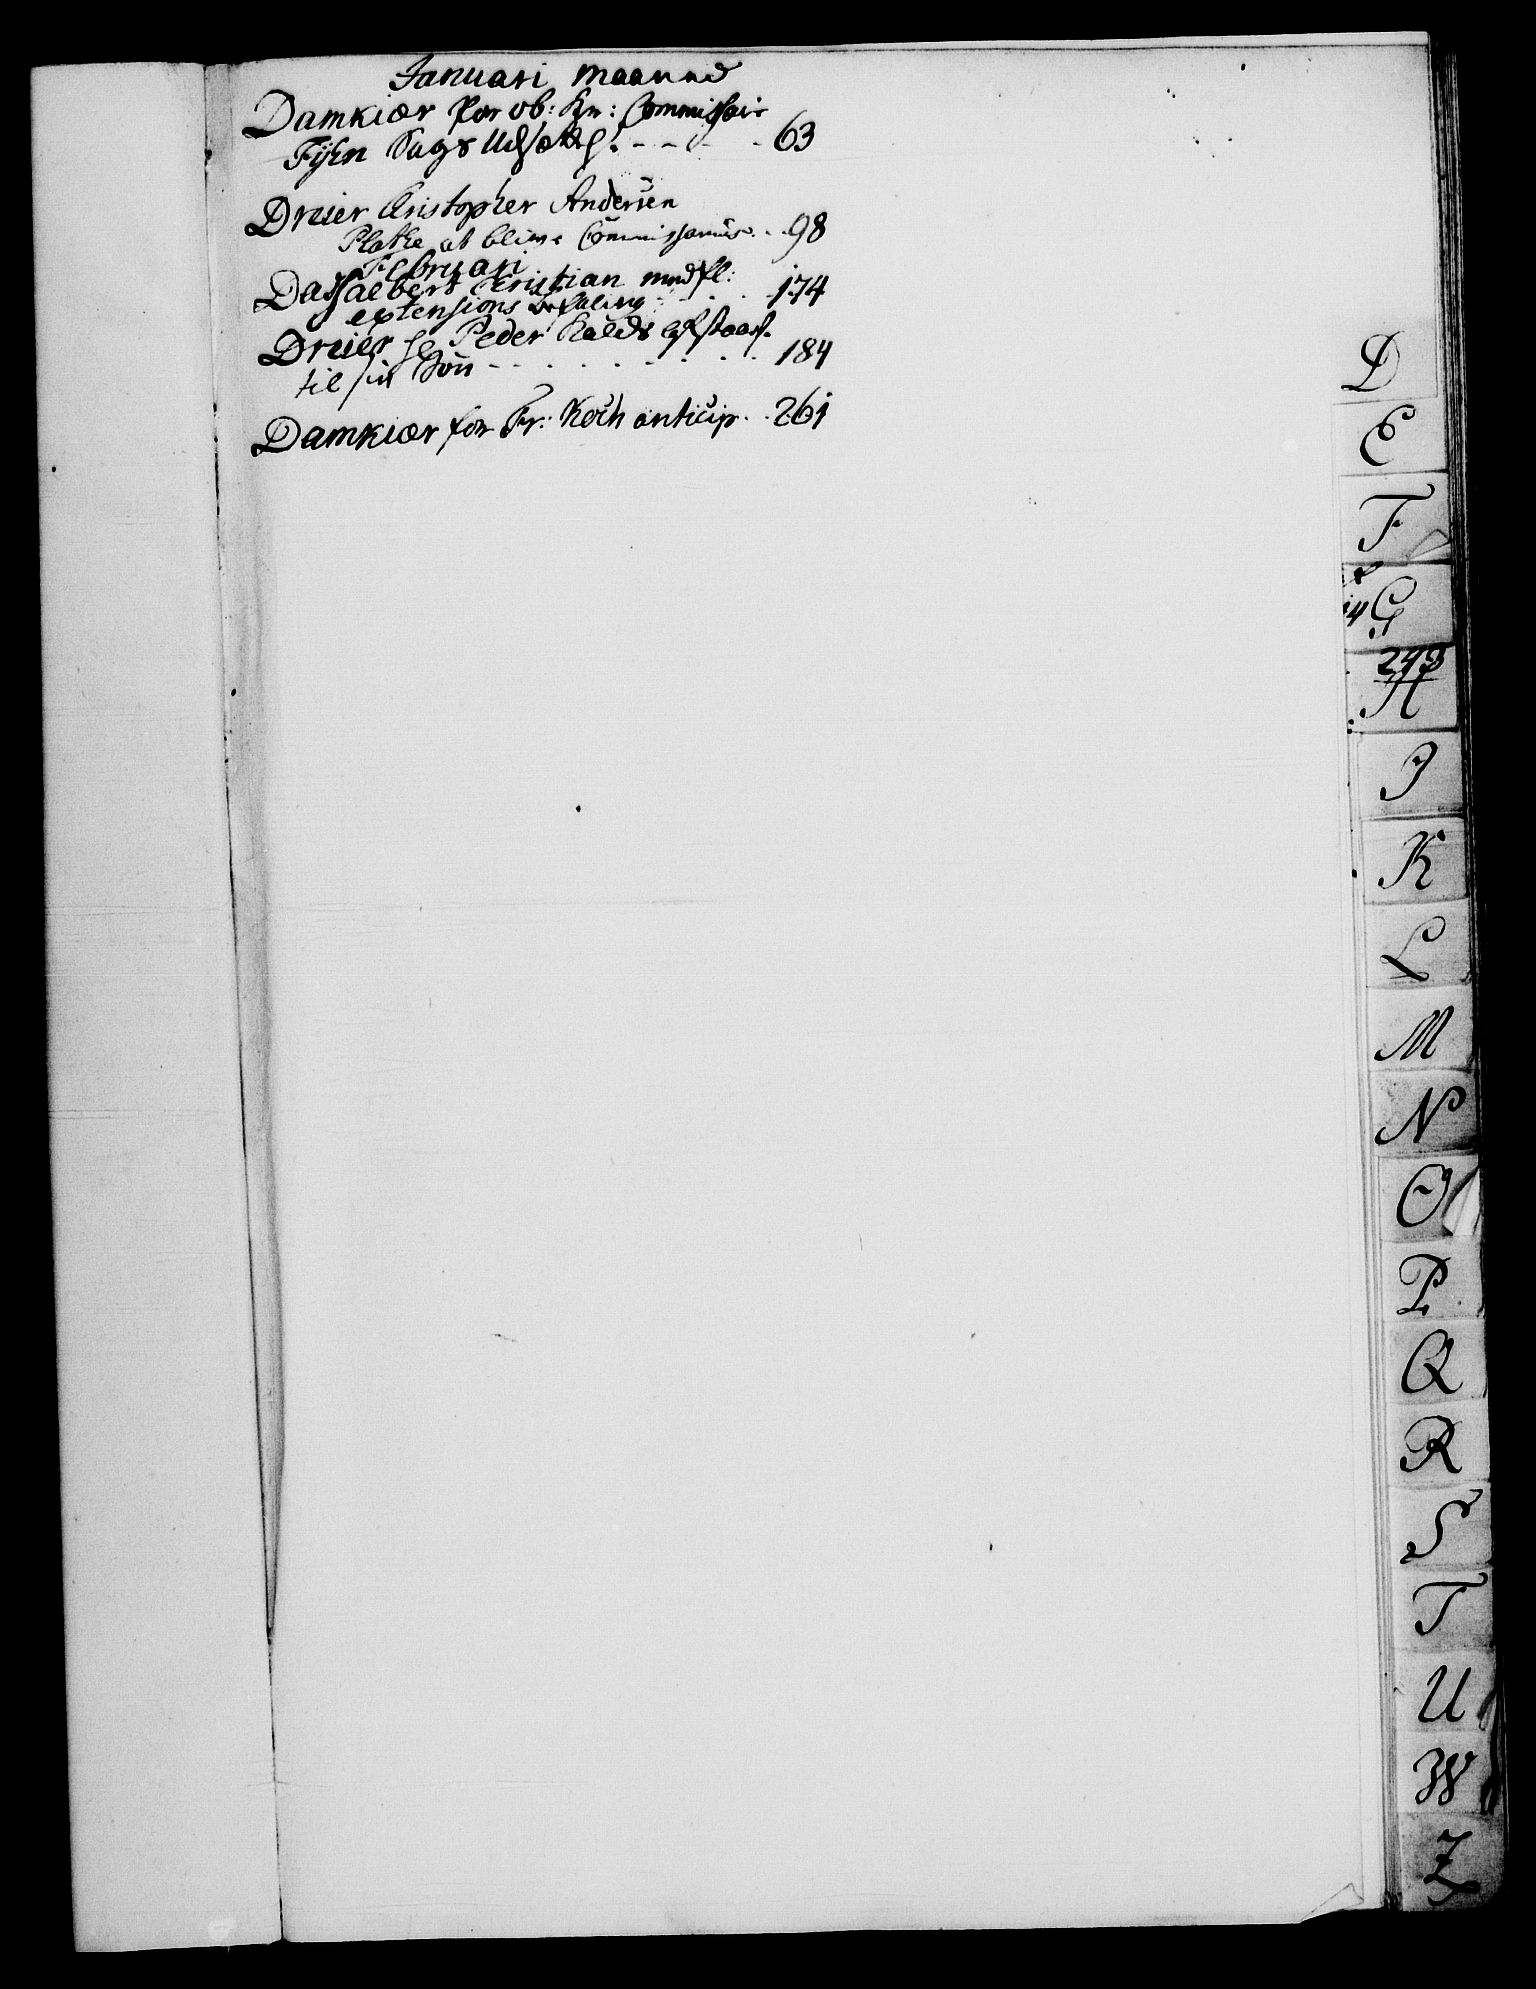 Januari maaned
Damkiær for ob: Kr: Commissair
Fyhn Sags Udsættels. - - - - 63
Dreier Christopher Andersen
Plathe at blive Commissarius. . . 98
Februari
Dass albert Christian med fl:
extensions befaling . . . . 174
Dreier Peder Kalds afstaaels.
til sin Søn - - . . . . . . 184
Damkiær for Fr: Koch anticip. . 261
D
E
F
14 G
243
H
I
K
L
M
N
O
P
Q
R
S
T
U
W
Z